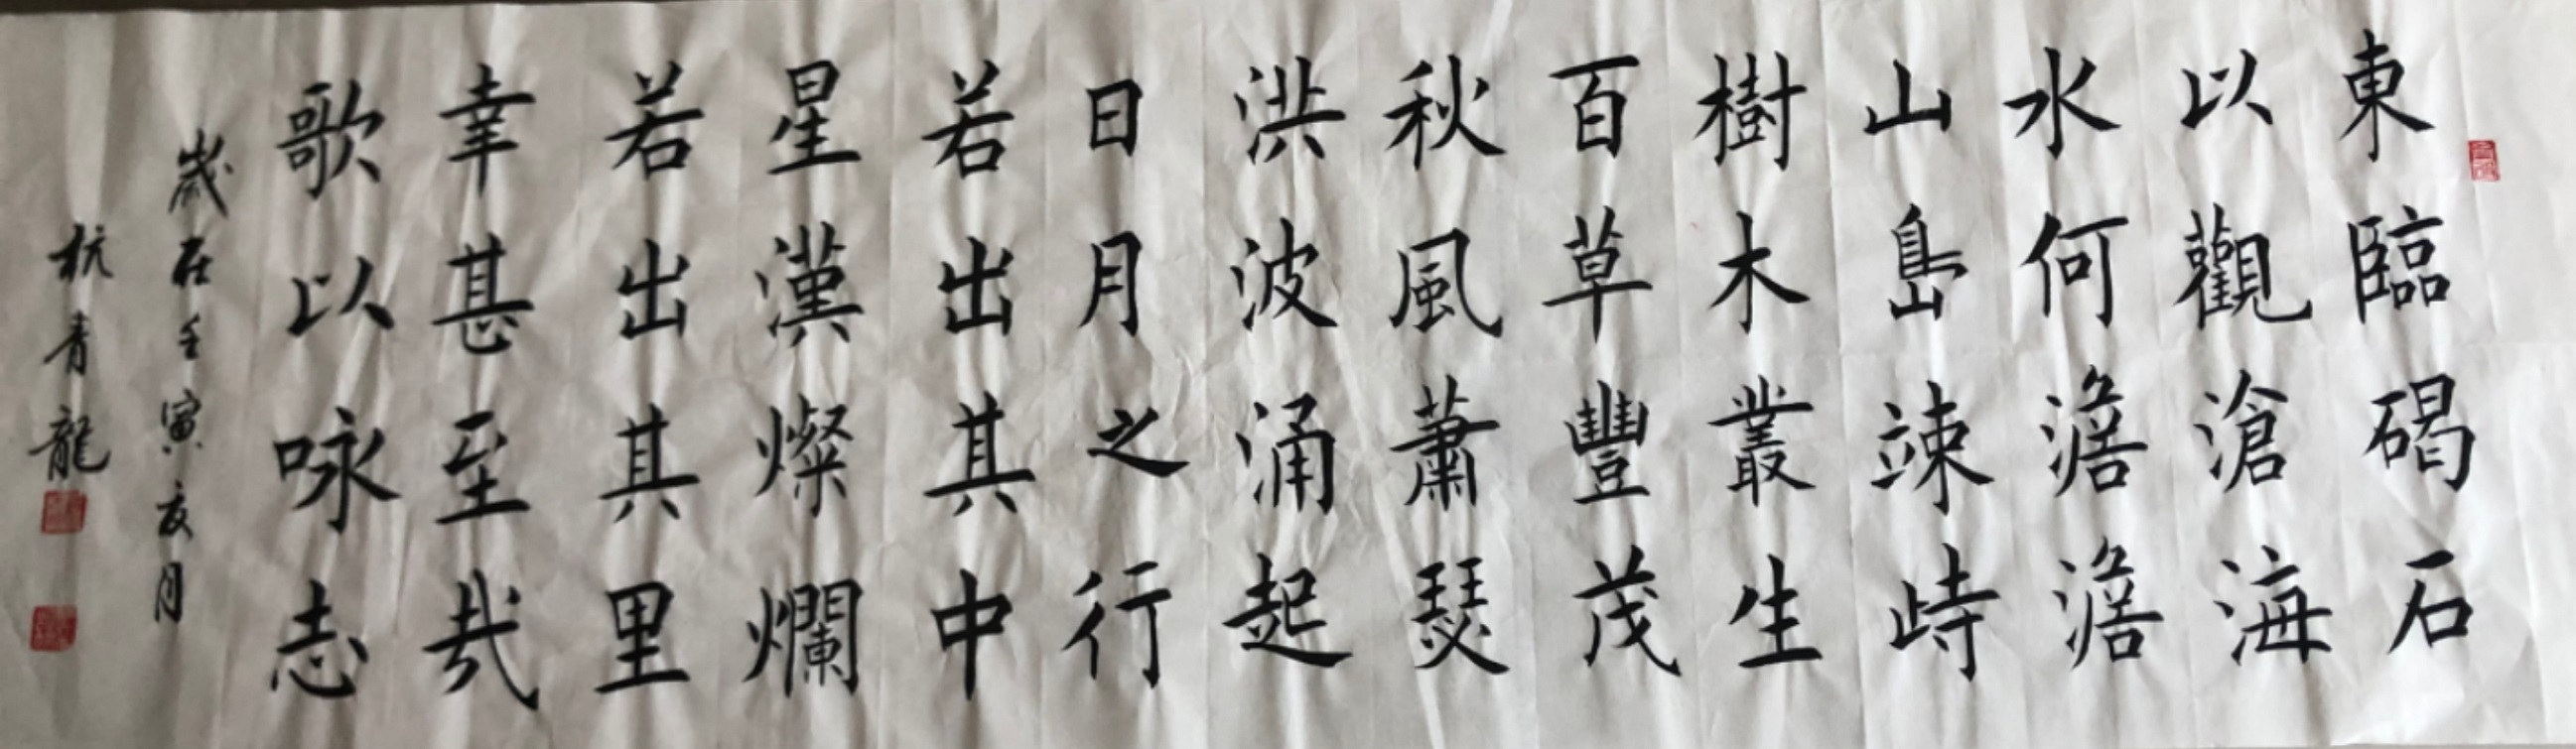 東臨碣石
以觀滄海
水何澹澹
山島竦峙
樹木叢生
百草豐茂
秋風蕭瑟
洪波涌起
日月之行
若出其中
星漢燦爛
若出其里
幸甚至哉
歌以咏志
歲在壬寅亥月
杭青龍